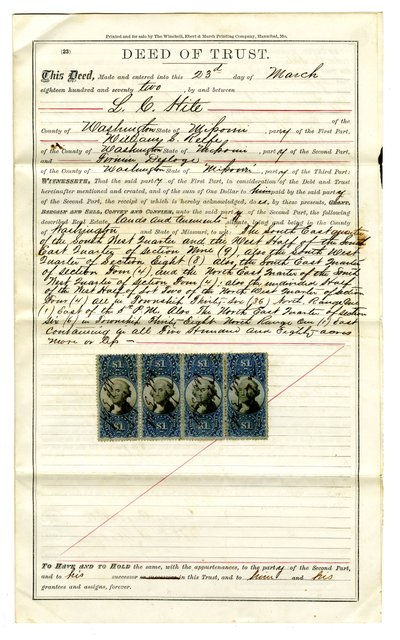 Printed and for sale by The Winchell, Ebert & Marsh Printing Company, Hannibal, Mo.
(23)
DEED OF TRUST.
This Deed, Made and entered into this 23d day of March
eighteen hundred and seventy two, by and between
L. C. Hite
of the
County of Washington State of Missouri, party of the First Part,
William S.
of the County of Washington State of Missouri, party of the Second Part,
and Firmin Desloge
of the County of Washington State of Missouri party of the Third Part:
WITNESSETH, That the said party of the First Part, in consideration of the Debt and Trust
hereinafter mentioned and created, and of the sum of One Dollar to him paid by the said party
of the Second Part, the receipt of which is hereby acknowledged, does, by these presents, GRANT,
BARGAIN AND SELL, CONVEY AND CONFIRM, unto the said party of the Second Part, the following
described Real Estate, lands and tenements State, lying and being in the County
of Washington and State of Missouri, to wit: The South East quarter
of the South West Quarter and the West Half of the South
East Quarter of section Nine (9) also the South West
Quarter of section Eight (8) also the South East Quarter
of section Four (4) and the North East Quarter of the South
West Quarter of section Four (4): also the undivided Half
of the West Half of Lot Two of the North West Quarter of section
Four (4) all in Township Thirty Six (36) North Range One
(1) East of the 5th P.M. Also The North East Quarter of section
Six (6) in Township Thirty Eight North Range One (1) East
Containing in all Five Hundred and Eighty acres
more or less —
$1 $1 $1 $1
TO HAVE AND TO HOLD the same, with the appurtenances, to the party of the Second Part,
and to his successor or successors in this Trust, and to and his
grantees and assigns, forever.